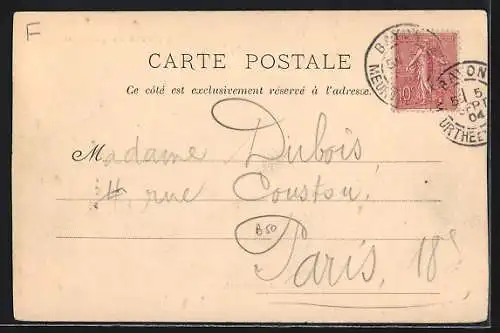 F
CARTE POSTALE
Ce côté est exclusivement réservé à l'adresse.
BAYON
5
MEURT
10
BAYON
5
SEPT
04
URTHE ET
Madame Dubois,
4, rue Coustou,
B50
Paris, 18e